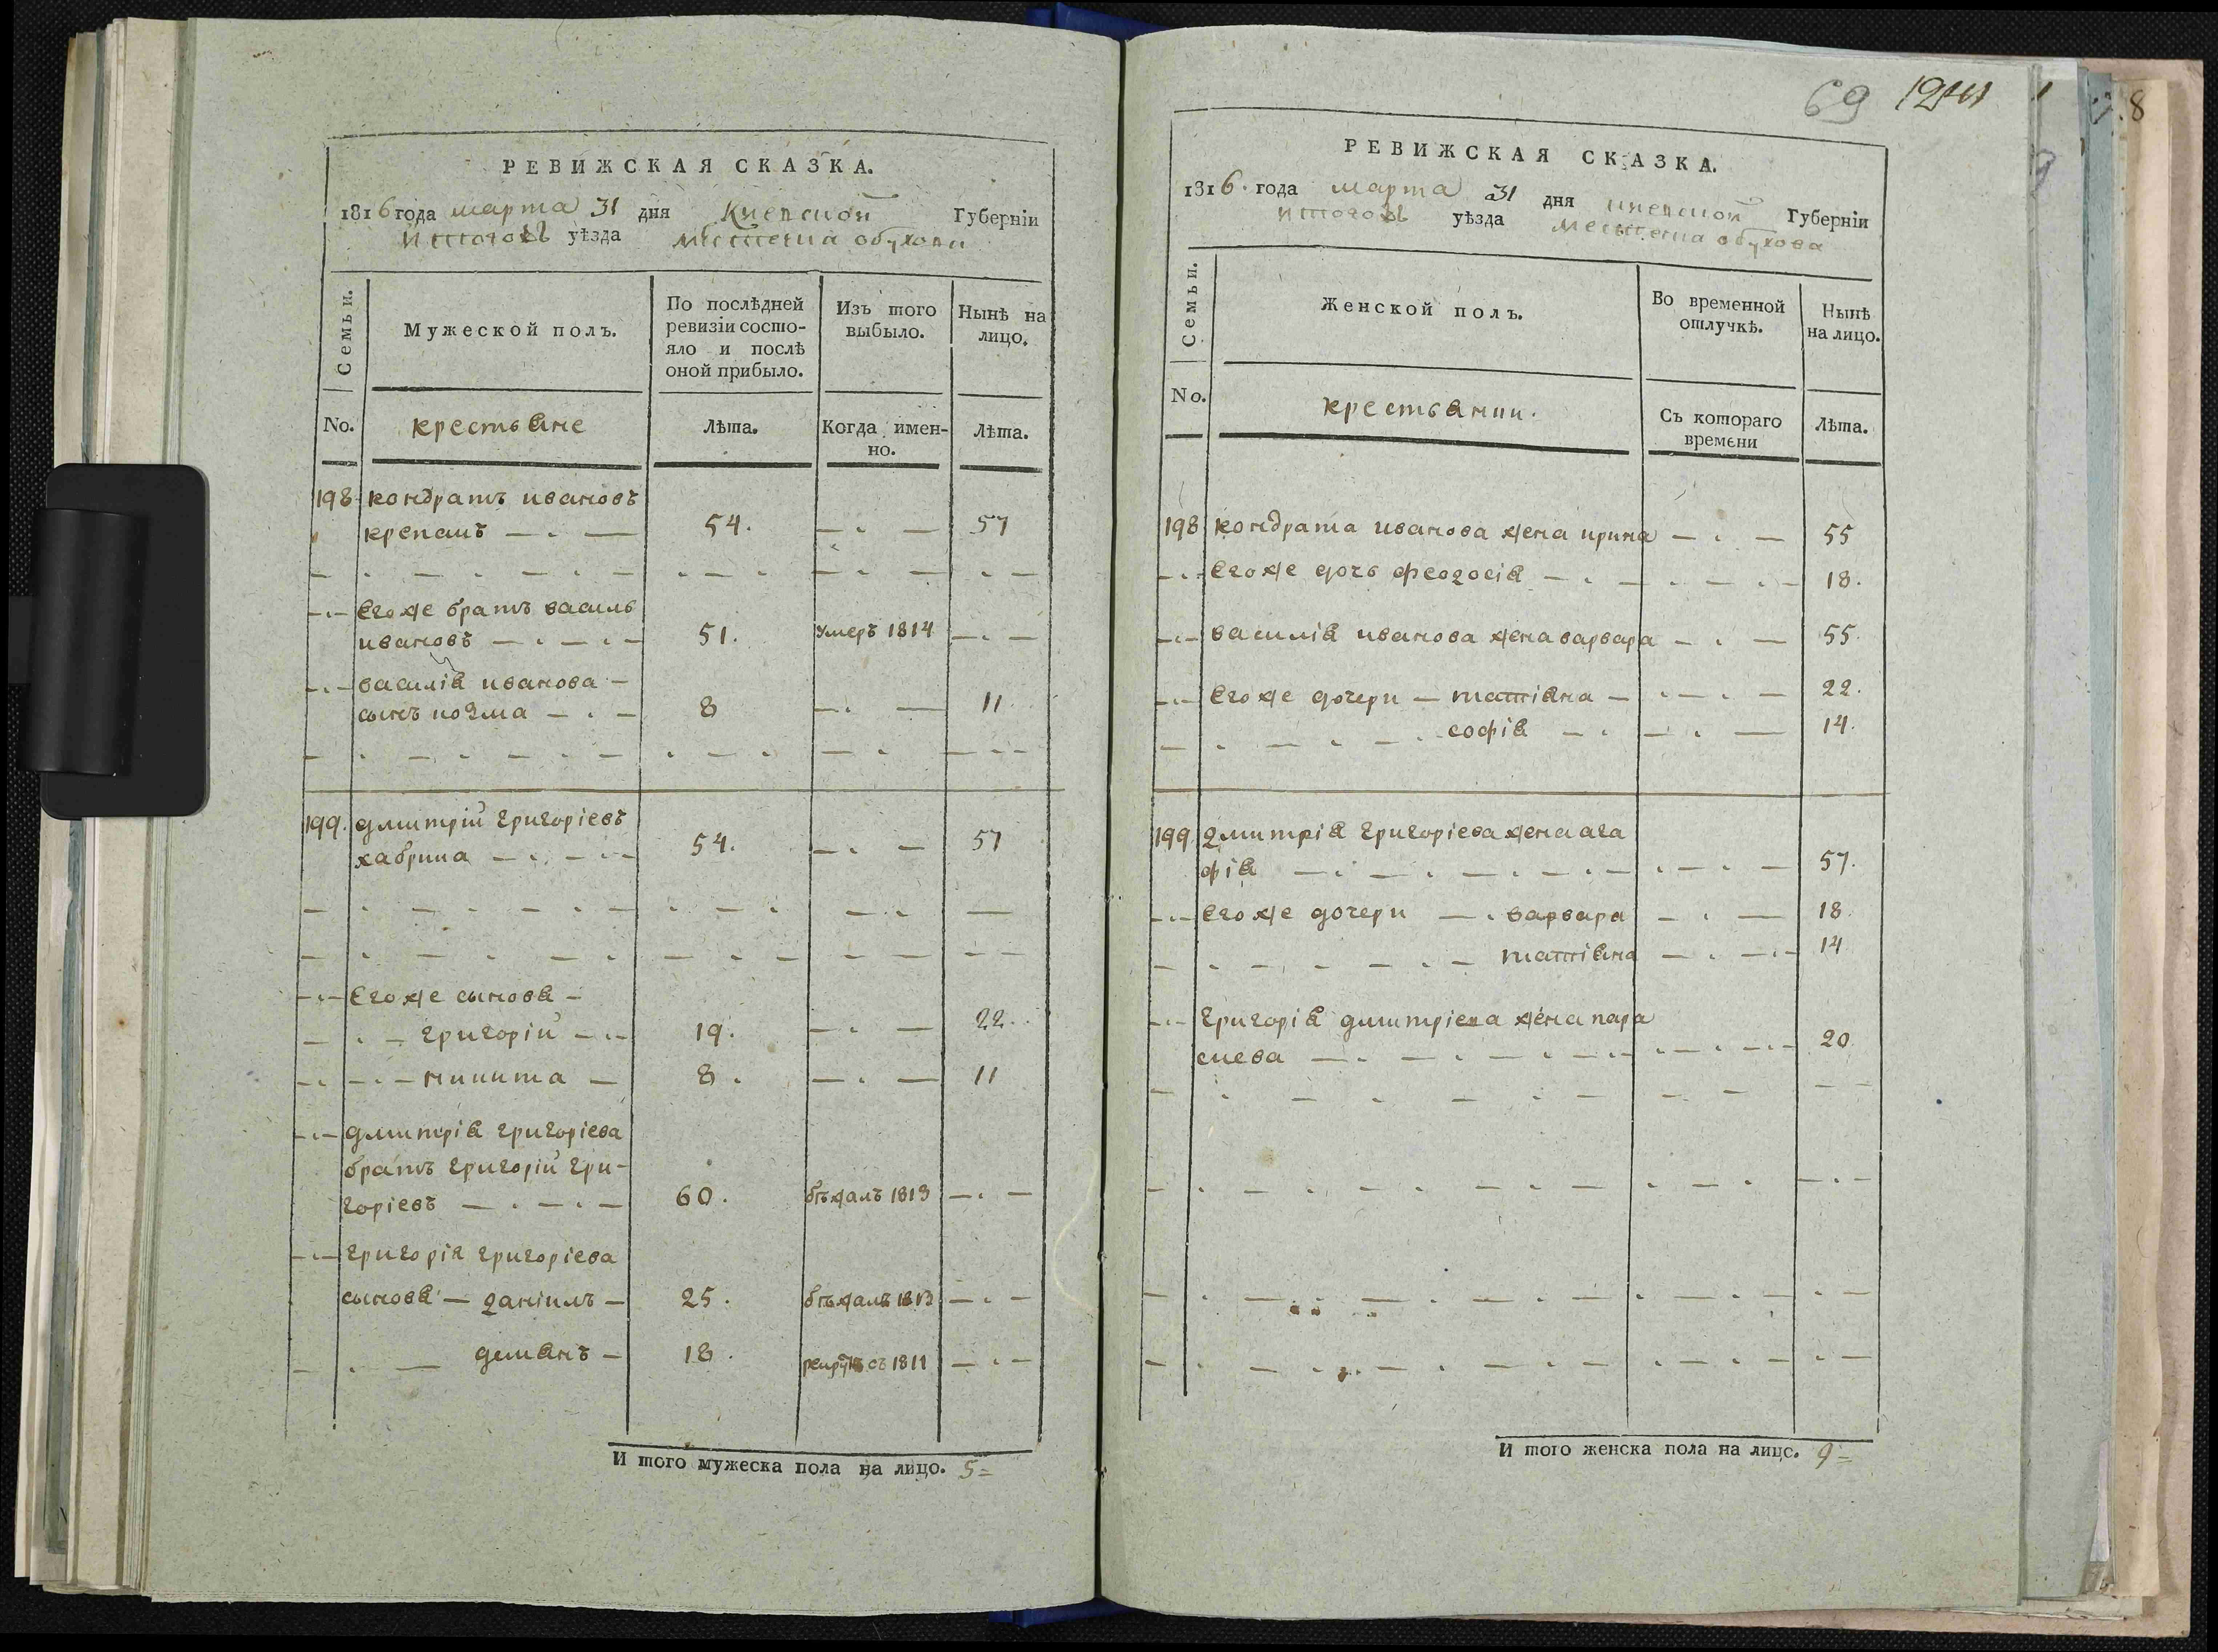 РЕВИЖСКАЯ СКАЗКА.
1816 года марта 31 дня Киевской Губерніи
уѣзда местечка обухова
Семьи.
Мужеской полъ.
По послѣдней ревизіи состояло и послѣ оной прибыло.
Изъ того выбыло.
Нынѣ на лицо.
No.
крестьяне
Лѣта.
Когда именно.
Лѣта.
198 кондратъ ивановъ
крепакъ — . — 54. — . — 57
— . — Егоже братъ василь
ивановъ — . — . — 51. умеръ 1814 — . —
— . — василія иванова —
сынъ козма — . — 8 — . — 11.
199. дмитрій григоріевъ
хабрика — . — . — 54. — . — 57
— . — Егоже сыновя —
— . — григорій — . — 19. — . — 22.
— . — . — никита — 8. — . — 11
— . — дмитрія григоріева
братъ григорій гри-
горіевъ — . — . — 60. бѣжалъ 1813 — . —
— . — григорія григоріева
сыновя — даніилъ — 25. бѣжалъ 1813 — . —
— . — демянъ — 18. 1811 — . —
И того мужеска пола на лицо. 5=
69
РЕВИЖСКАЯ СКАЗКА.
1816. года марта 31 дня киевской Губерніи
уѣзда местечка обухова
Семьи.
Женской полъ.
Во временной отлучкѣ.
Нынѣ на лицо.
No.
крестьянки.
Съ котораго времени
Лѣта.
198 кондрата иванова жена ирина — . — 55
— . — Егоже дочь феодосія — . — 18.
— . — василія иванова жена варвара — . — 55.
— . — Егоже дочери — татіяна — . — 22.
софія — . — 14.
199 дмитрія григоріева жена ага
фія — . — 57.
— . — Егоже дочери — . варвара — . — 18.
татіяна — . — 14
— . — григорія дмитріева жена пара
скева — . — 20.
И того женска пола на лицо. 9=